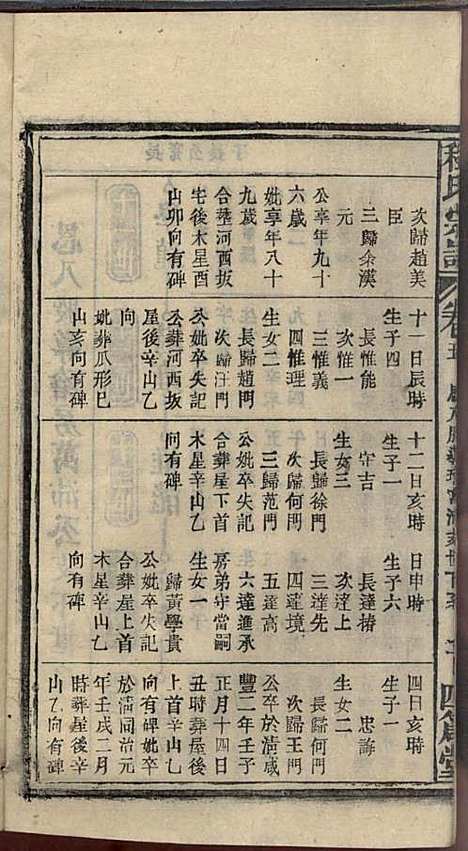 次歸趙美
臣
三歸余漢
元
公卒年九十
六歲
妣享年八十
九歲
合塟河西坂
宅後木星酉
山卯向有碑
十一日辰時
生子四
長惟能
次惟一
三惟義
四惟理
生女二
長歸趙門
次歸汪門
公妣卒失記
公葬河西坂
屋後辛山乙
向
妣葬爪形巳
山亥向有碑
十二日亥時
生子一
守吉
生女三
長歸徐門
次歸何門
三歸范門
公妣卒失記
合葬星下首
木星辛山乙
向有碑
日申時
生子六
長達椿
次達上
三達先
四達境
五達高
六達進承
房弟守當嗣
生女一
歸黃學貴
公妣卒失記
合葬屋上首
木星辛山乙
向有碑
四日亥時
生子一
忠壽
生女二
長歸何門
次歸王門
公卒於清咸
豐二年壬子
正月十四日
丑時葬屋後
上首辛山乙
向有碑妣卒
於清同治元
年壬戌二月
時葬屋後辛
山乙向有碑
程氏宗譜
卷五